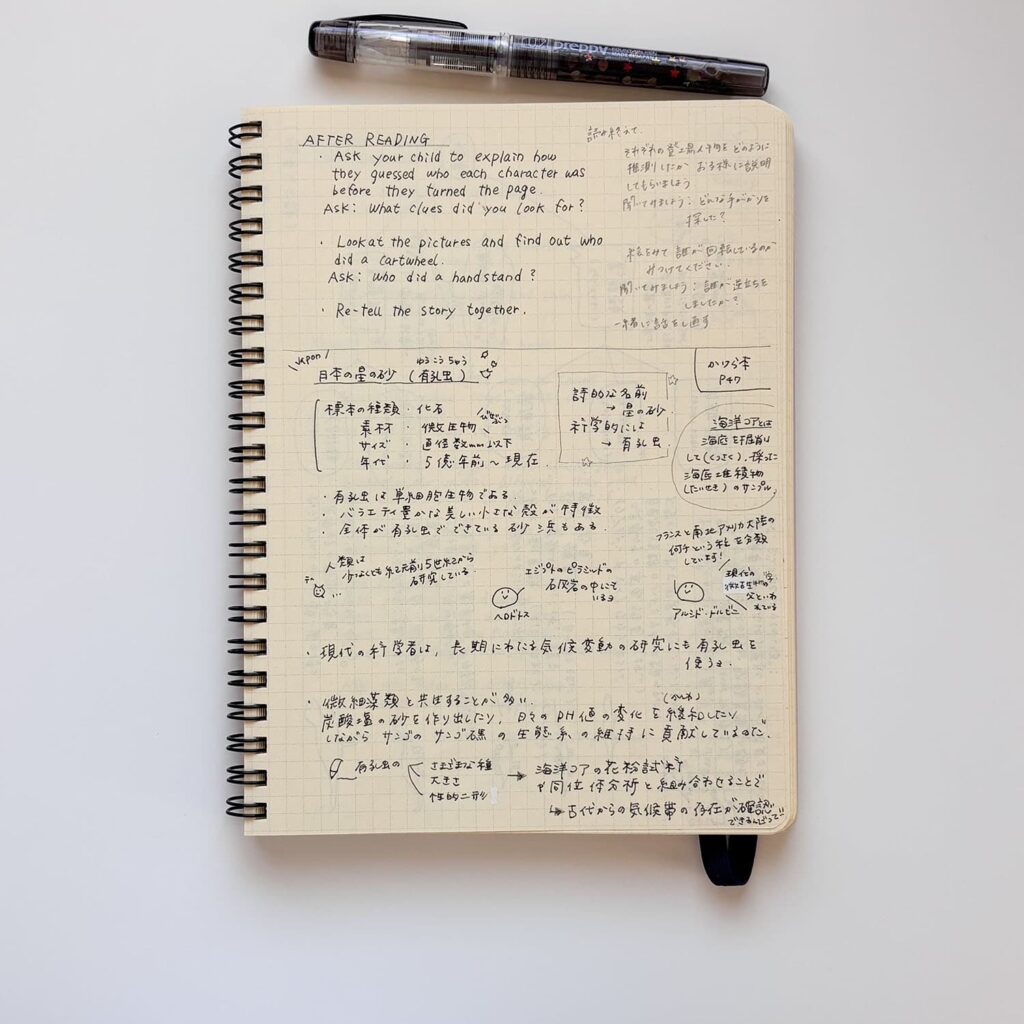 02 preppy
AFTER READING
・Ask your child to explain how
they guessed who each character was
before they turned the page.
Ask: What clues did you look for?
・Look at the pictures and find out who
did a cartwheel.
Ask: Who did a handstand?
・Re-tell the story together.
読み終えて.
それぞれの登場人物を どのように
推測したか お子様に説明
してもらいましょう
聞いてみましょう：どんな手がかりを
探した？
絵をみて 誰が回転しているのか
みつけてください.
聞いてみましょう：誰が逆立ちを
しましたか？
一緒に話をし直す
Japan
ゆうこうちゅう
日本の星の砂 (有孔虫)
かけら本
P47
標本の種類・化石
びせいぶつ
素材・微生物
サイズ・直径数mm以下
年代・5億年前〜現在.
詩的な名前
→ 星の砂.
科学的には
→ 有孔虫.
海洋コアとは
海底を掘削
して(くっさく), 採った
海底堆積物
(たいせき) のサンプル
・有孔虫は単細胞生物である.
・バラエティ豊かな美しい小さな殻が特徴
・全体が有孔虫でできている砂浜もある.
人類は
少なくとも紀元前5世紀から
研究している.
エジプトのピラミッドの
石灰岩の中にて
いるヨ
ヘロドトス
フランスと南北アメリカ大陸の
何千という種を分類
しています!
現代の
微古生物学の
父といわ
れている
アルシド・ドルビニ
・現代の科学者は, 長期にわたる気候変動の研究にも有孔虫を
使うヨ.
・微細藻類と共生することが多い.
(かんわ)
炭酸塩の砂を作り出したり, 日々のPH値の変化を緩和したり
しながら サンゴのサンゴ礁の生態系の維持に貢献しているのだ.
有孔虫の
さまざまな種
大きさ
性的二形
→ 海洋コアの花粉試料
や同位体分析と組み合わせることで
↳ 古代からの気候帯の存在が確認
できるんだって